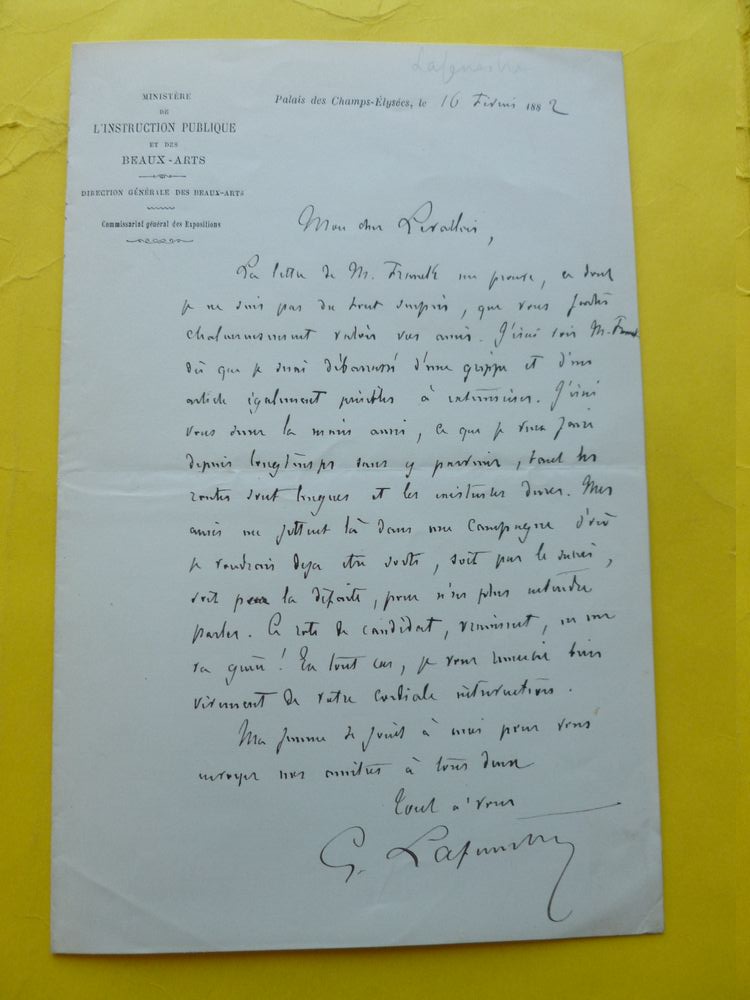 Lafenestre
MINISTÈRE
DE
L'INSTRUCTION PUBLIQUE
ET DES
BEAUX-ARTS
DIRECTION GÉNÉRALE DES BEAUX-ARTS
Commissariat général des Expositions
Palais des Champs-Élysées, le 16 Février 1882
Mon cher Levallois,
La lettre de M. Franck me prouve, ce dont
je ne suis pas du tout surpris, que vous faites
chaleureusement valoir vos amis. J'irai voir M. Franck
dès que je serai débarrassé d'une grippe et d'un
article également pénibles à
vous serrer la main aussi, ce que je veux faire
depuis longtemps sans y parvenir, tant les
routes sont longues et les dures. Mes
amis me jettent là dans une campagne d'où
je voudrais déja être sorti, soit par le succès,
soit par la défaite, pour n'en plus entendre
parler. Ce rôte de candidat, vraiment, ne me
va guère ! En tout cas, je vous remercie bien
vivement de votre cordiale intervention.
Ma femme se joint à moi pour vous
envoyer nos amitiés à tous deux
Tout à vous
G. Lafenestre